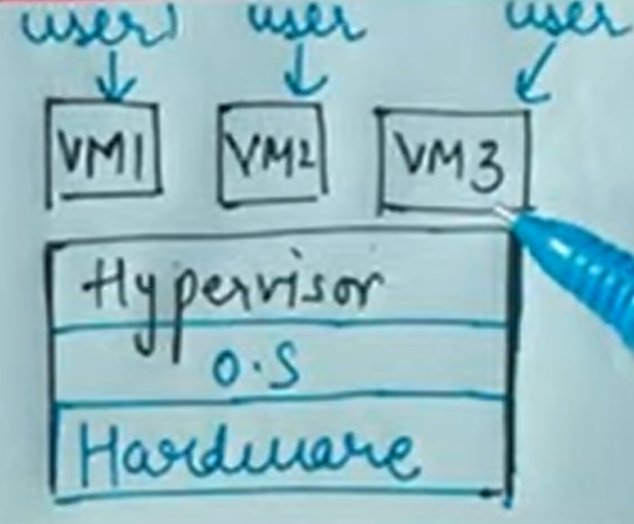 user) user user
VM1 VM2 VM3
Hypervisor
O.S
Hardware